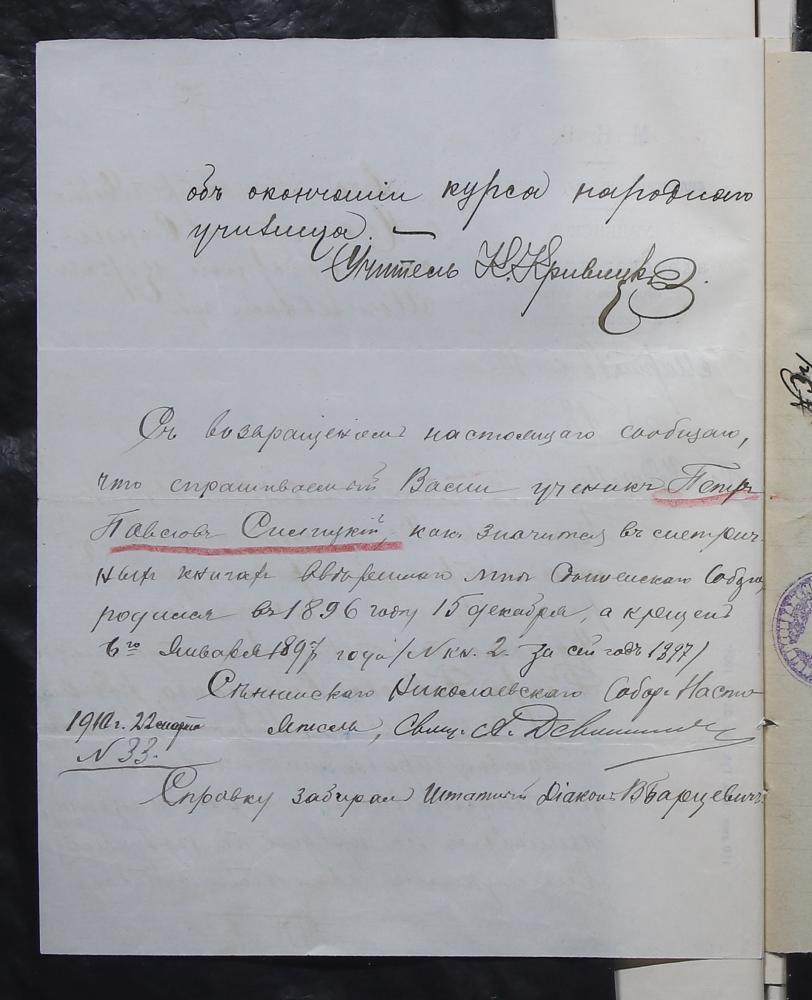 объ окончаніи курса народнаго
училища. —
Учитель К. Кривицкій.
Съ возвращеніемъ настоящаго сообщаю,
что спрашиваемый Вами ученикъ Петръ
Павловъ Силицкій, какъ значится въ метрич-
ныхъ книгахъ ввѣренная мнѣ Собора,
родился въ 1896 году 15 декабря, а крещенъ
6го Января 1897 года (№ кн. 2. за сей годъ 1897)
Сѣннинскаго Николаевскаго Собор. Насто-
1910 г. 22 марта ятель, Свящ. А.
№ 33.
Справку забиралъ Штатный Діаконъ В. Барцевичъ